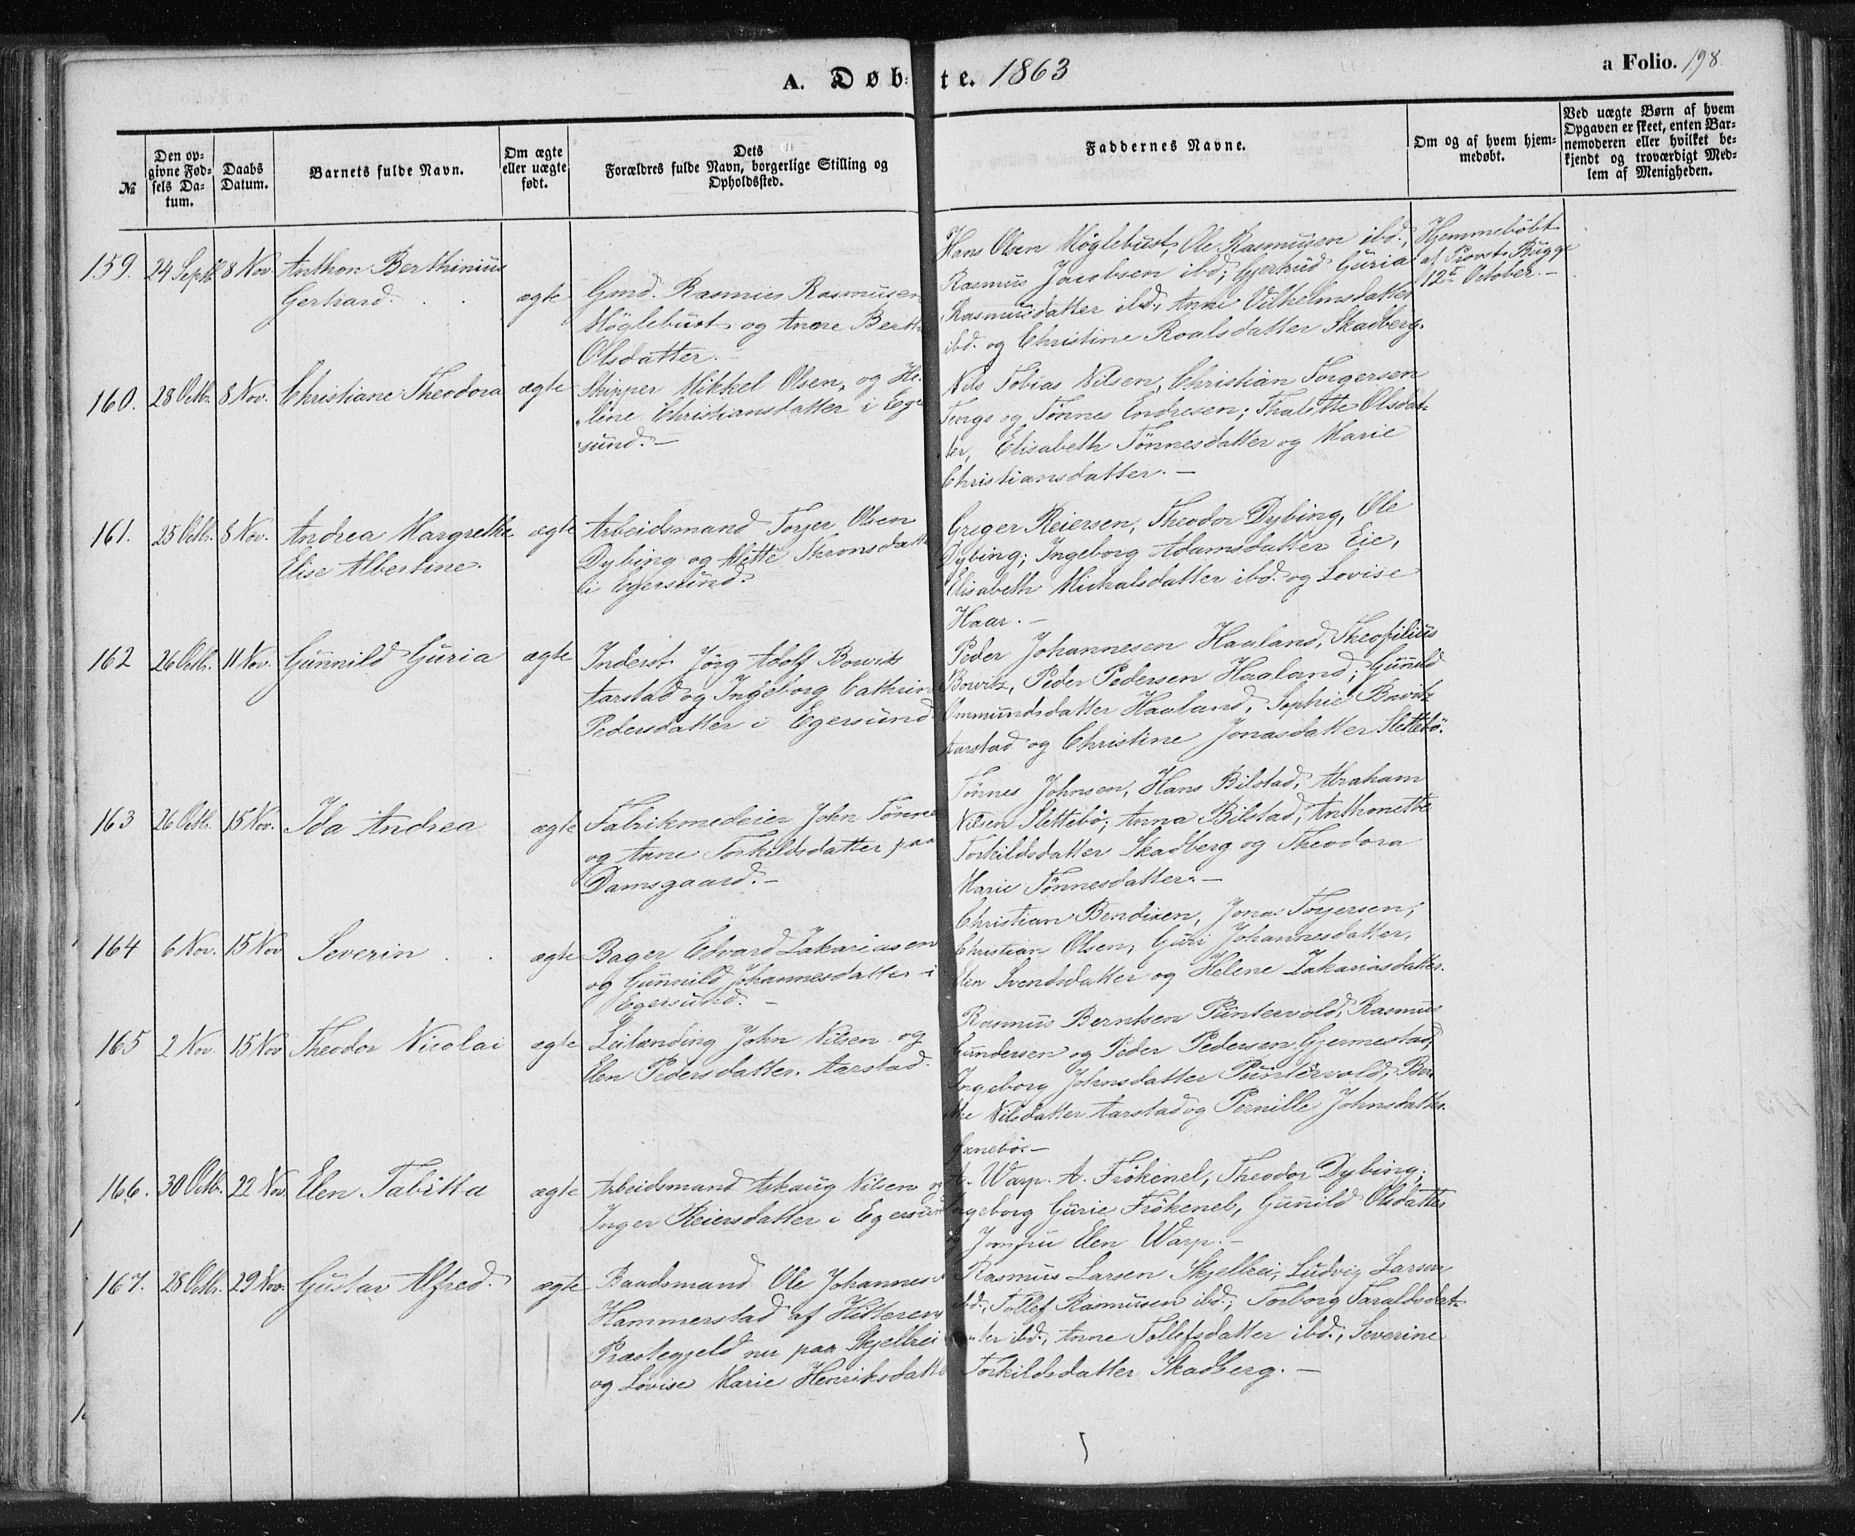 A. Døbte. 1863
a Folio. 198.
№
Den opgivne Fødsels Datum.
Daabs Datum.
Barnets fulde Navn.
Om ægte eller uægte født.
Dets Forældres fulde Navn, borgerlige Stilling og Opholdssted.
Faddernes Navne.
Om og af hvem hjemmedøbt.
Ved uægte Børn af hvem Opgaven er skeet, enten Barnemoderen eller hvilket bekjendt og troværdigt Medlem af Menigheden.
159. 24 Septb. 8 Nov. Anthon Berthinius
Gerhard.
ægte Gmd. Rasmus Rasmusen
Høglebust og Anne Berth
Olsdatter.
Hans Olsen Møglebust, Ole Rasmusen ibd.,
Rasmus Jacobsen ibd; Gjertrud Guria
Rasmusdatter ibd., Anne Vilhelmsdatter
ibd. og Christine Roalsdatter Skadberg.
Hjemmedøbt
af Provst Bugge
12te October.
160. 28 Octb. 8 Nov. Christiane Theodora ægte Skipper Mikkel Olsen, og He-
lene Christiansdatter i Eger
sund.
Nils Tobias Nilsen, Christian Torgersen
Tengs og Tønnes Endresen; Thalitte Olsdat-
ter, Elisabeth Tønnesdatter og Marie
Christiansdatter.
161. 25 Octb. 8 Nov. Andrea Margrethe
Elise Albertine.
ægte Arbeidsmand Torjer Olsen
Dybing og Mette Thronsdatt
i Egersund.
Greger Reiersen, Theodor Dybing, Ole
Dybing; Ingeborg Adamsdatter Eie,
Elisabeth Michalsdatter ibd. og Lovise
Haar.
162 26 Octb. 11 Nov. Gunnild Guria ægte Inderst Jörg Adolf Bowitz
Aarstad og Ingeborg Cathrin
Pedersdatter i Egersund
Peder Johannesen Haaland, Theofilius
Bowitz, Peder Pedersen Haaland; Gunild
Ommundsdatter Haaland, Sophie Bowitz
Aarstad og Christine Jonasdatter Slettebö.
163 26 Octb. 15 Nov. Ida Andrea ægte Fabrikmedeier John Tønnes
og Anne Torkildsdatter paa
Damsgaard.
Tønnes Johnsen, Hans Bilstad, Abraham
Nilsen Slettebö; Anna Bilstad, Anthonette
Torkildsdatter Skadberg og Theodora
Marie Tönnesdatter.
164 6 Nov. 15 Nov Severin ægte Bager Edvard Zakariasen
og Gunnild Johannesdatter i
Egersund.
Christian Bendixen, Jonas Torjersen,
Christian Olsen, Guri Johannesdatter,
Elen Svendsdatter og Helene Zakariasdatter.
165 2 Nov 15 Nov Theodor Nicolai ægte Leilænding John Nilsen og
Elen Pedersdatter. Aarstad.
Rasmus Berntsen Puntervold, Rasmus
Gundersen og Peder Pedersen Gjermestad,
Ingeborg Johnsdatter Puntervold, Ber
the Nilsdatter Aarstad og Pernille Johnsdatter
166. 30 Octb. 22 Nov. Elen Tabitta ægte Arbeidsmand Askaug Nilsen og
Inger Reiersdatter i Egersund
A. Warp. A. Frökenel, Theodor Dybing;
Ingeborg Gurie Frökenel, Gunild Olsdatter
og Jomfru Elen Warp.
167. 28 Octb. 29 Nov. Gustav Alfred. ægte Baadsmand Ole Johannes
Hammerstad af Hitteren
Præstegjeld nu paa Skjelbrei
og Lovise Marie Henriksdatte
Rasmus Larsen Skjelbrei, Ludvig Larsen
ibd., Tollef Rasmusen ibd.; Torborg Taraldsdat-
ter ibd., Anne Tollefsdatter ibd., Severine
Torkildsdatter Skadberg.